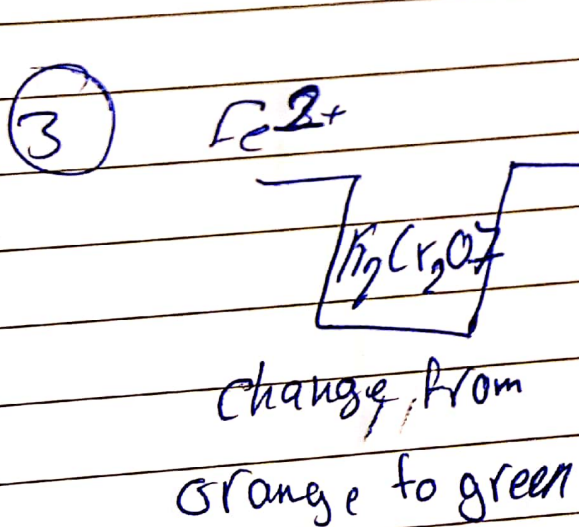 3 Fe2+
K2Cr2O7
change from
orange to green